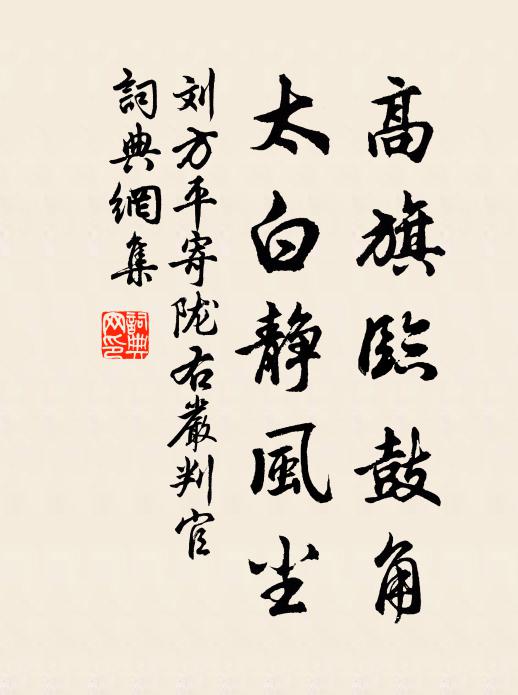 高旗臨鼓角
太白静風尘
刘方平寄陇右嚴判官
詞典網集
詞典
网印